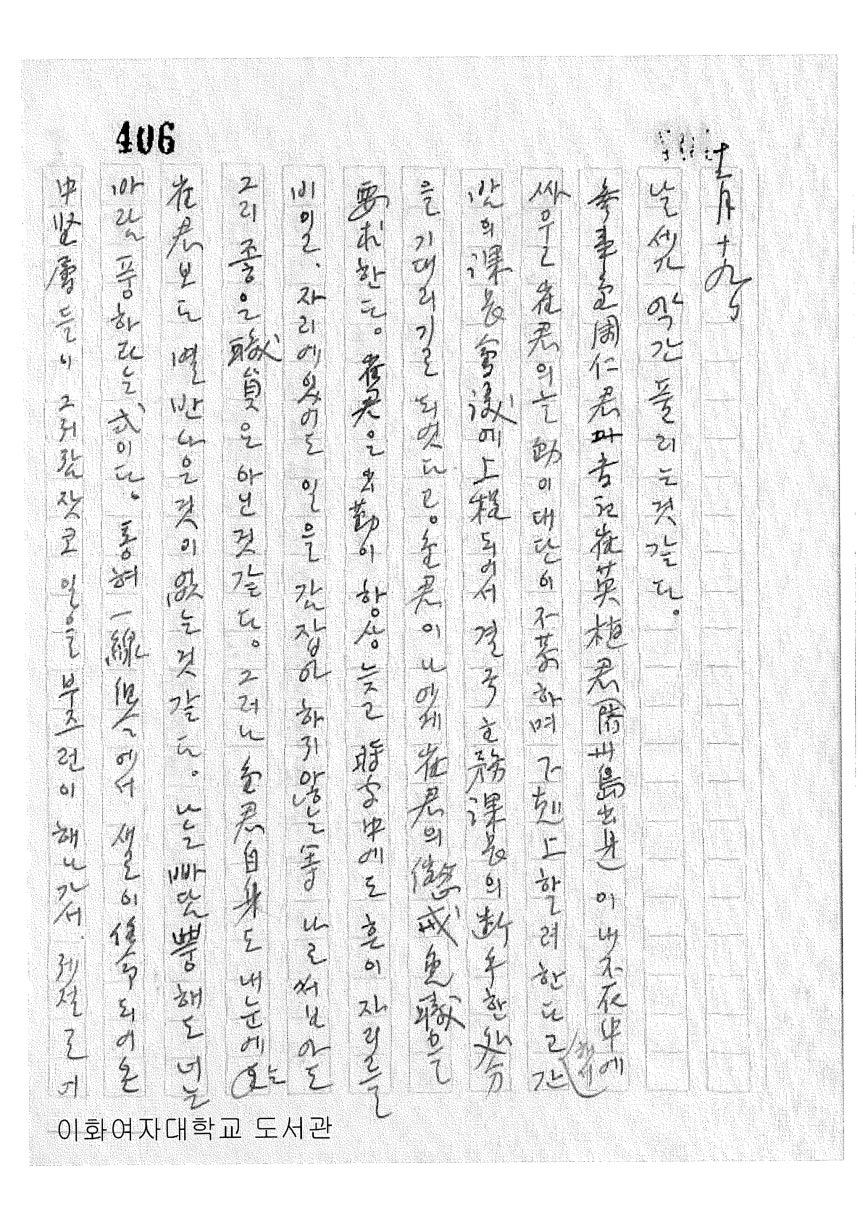 406
十二月 十九日
날세가 약간 풀리는것 갈다。
參事 金周仁君과 書記 崔英植君(濟州島出身)이 내 不在中에
싸우고 崔君의 言動이 대단이 不恭하며 下剋上 할려 한다고 간
밤의 課長會議에 上程되여서 결국 主務課長의 斷乎한 処分
을 기대리기로 되엿다고。金君이 나에게 崔君의 懲戒免職을
要求한다。崔君은 出勤이 항상 늦고 時宇中에도 흔이 자리를
비일、 자리에 있어도 일을 갈잡아 하지않는 等 나로써 보아도
그리 좋은 職員은 아닌것 갈다。그러나 金君自身도 내눈에는
崔君보도 별반 나은것이 없는것 갈다。나는 빠담뿡해도 너는
마람풍 하라는 式이다。통혀 一線 에서 샐이 되어 온
中堅層들이 그러람잣코 일을 부즈런이 해나가서、 제절로 더
이화여자대학교 도서관